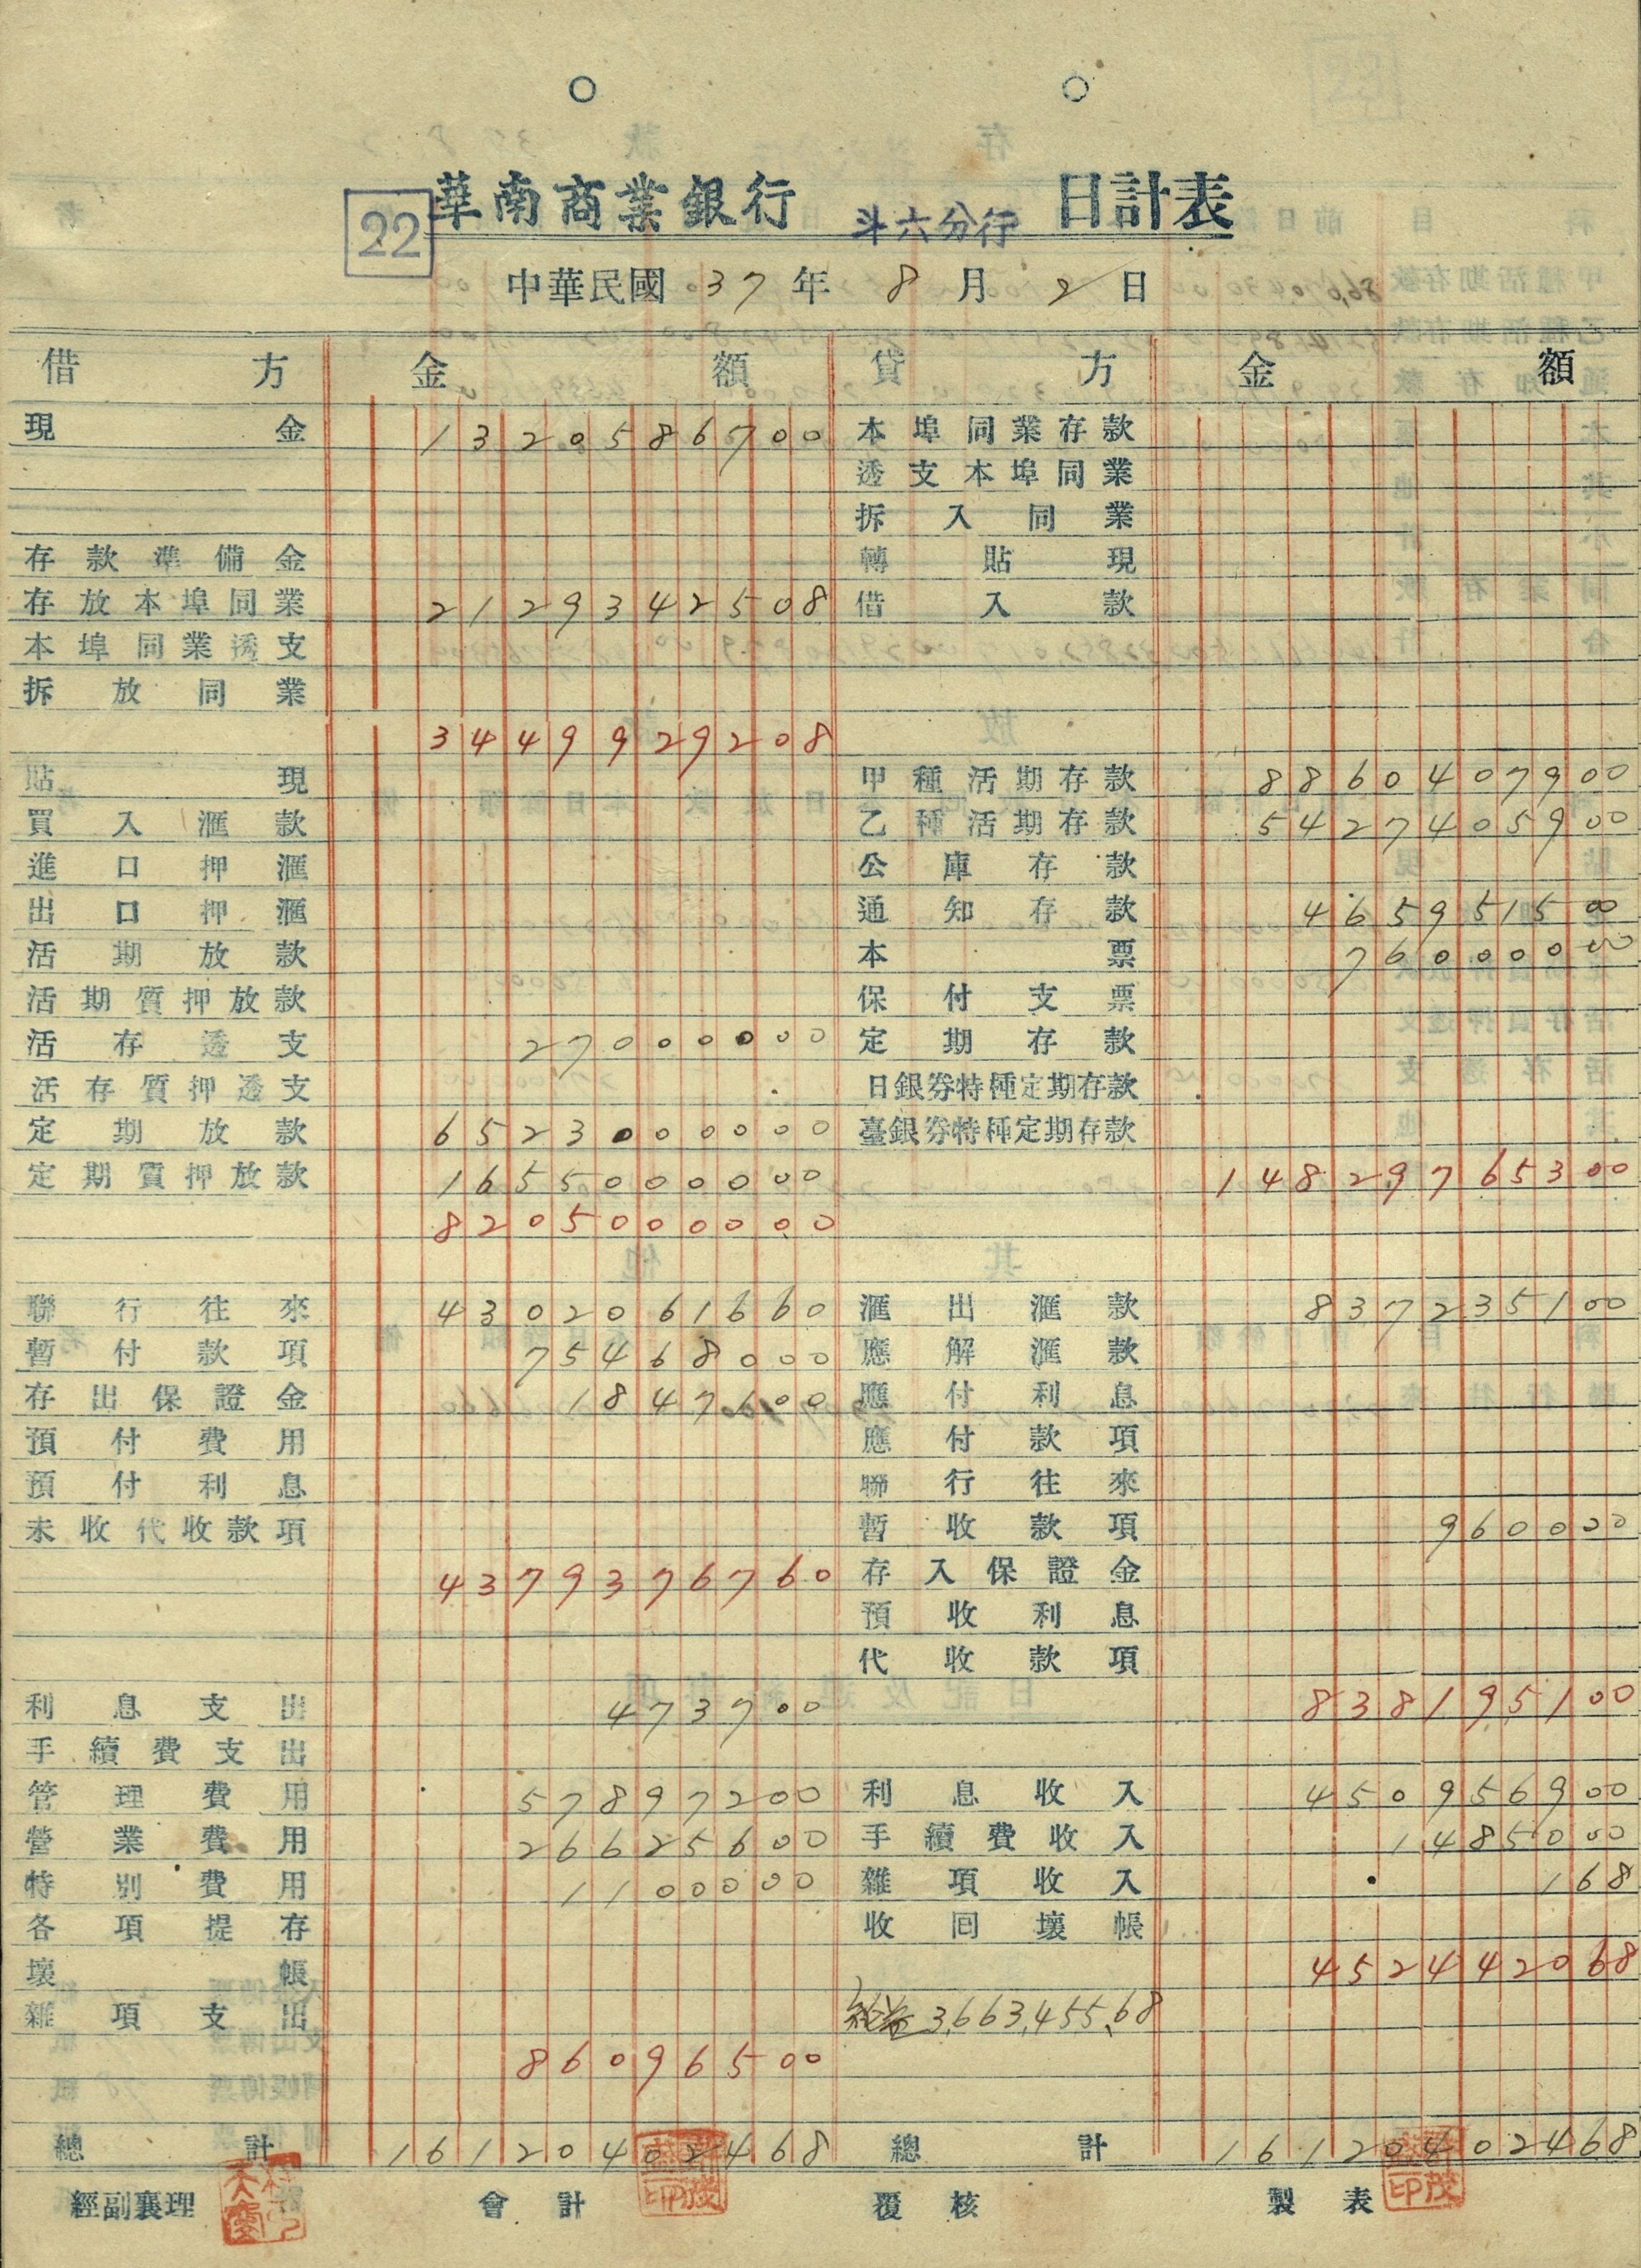 22 華南商業銀行 斗六分行 日計表
中華民國 37 年 8 月 2 日
借方 金額 貸方 金額
現金 1320586700 本埠同業存款
透支本埠同業
拆入同業
存款準備金 轉貼現
存放本埠同業 2129342508 借入款
本埠同業透支
拆放同業
3449929208
貼現 甲種活期存款 8860407900
買入滙款 乙種活期存款 5427405900
進口押滙 公庫存款
出口押滙 通知存款 465951500
活期放款 本票 76000000
活期質押放款 保付支票
活存透支 27000000 定期存款
活存質押透支 日銀券特種定期存款
定期放款 6523000000 臺銀券特種定期存款
定期質押放款 1655000000 14829765300
8205000000
聯行往來 4302061660 滙出滙款 837235100
暫付款項 75468000 應解滙款
存出保證金 1847100 應付利息
預付費用 應付款項
預付利息 聯行往來
未收代收款項 暫收款項 960000
4379376760 存入保證金
預收利息
代收款項
利息支出 473700 838195100
手續費支出
管理費用 57897200 利息收入 450956900
營業費用 26625600 手續費收入 1485000
特別費用 1100000 雜項收入 168
各項提存 收回壞帳
壞帳 452442068
雜項支出 純益 3,663,455.68
86096500
總計 16120402468 總計 16120402468
經副襄理 會計 覆核 製表